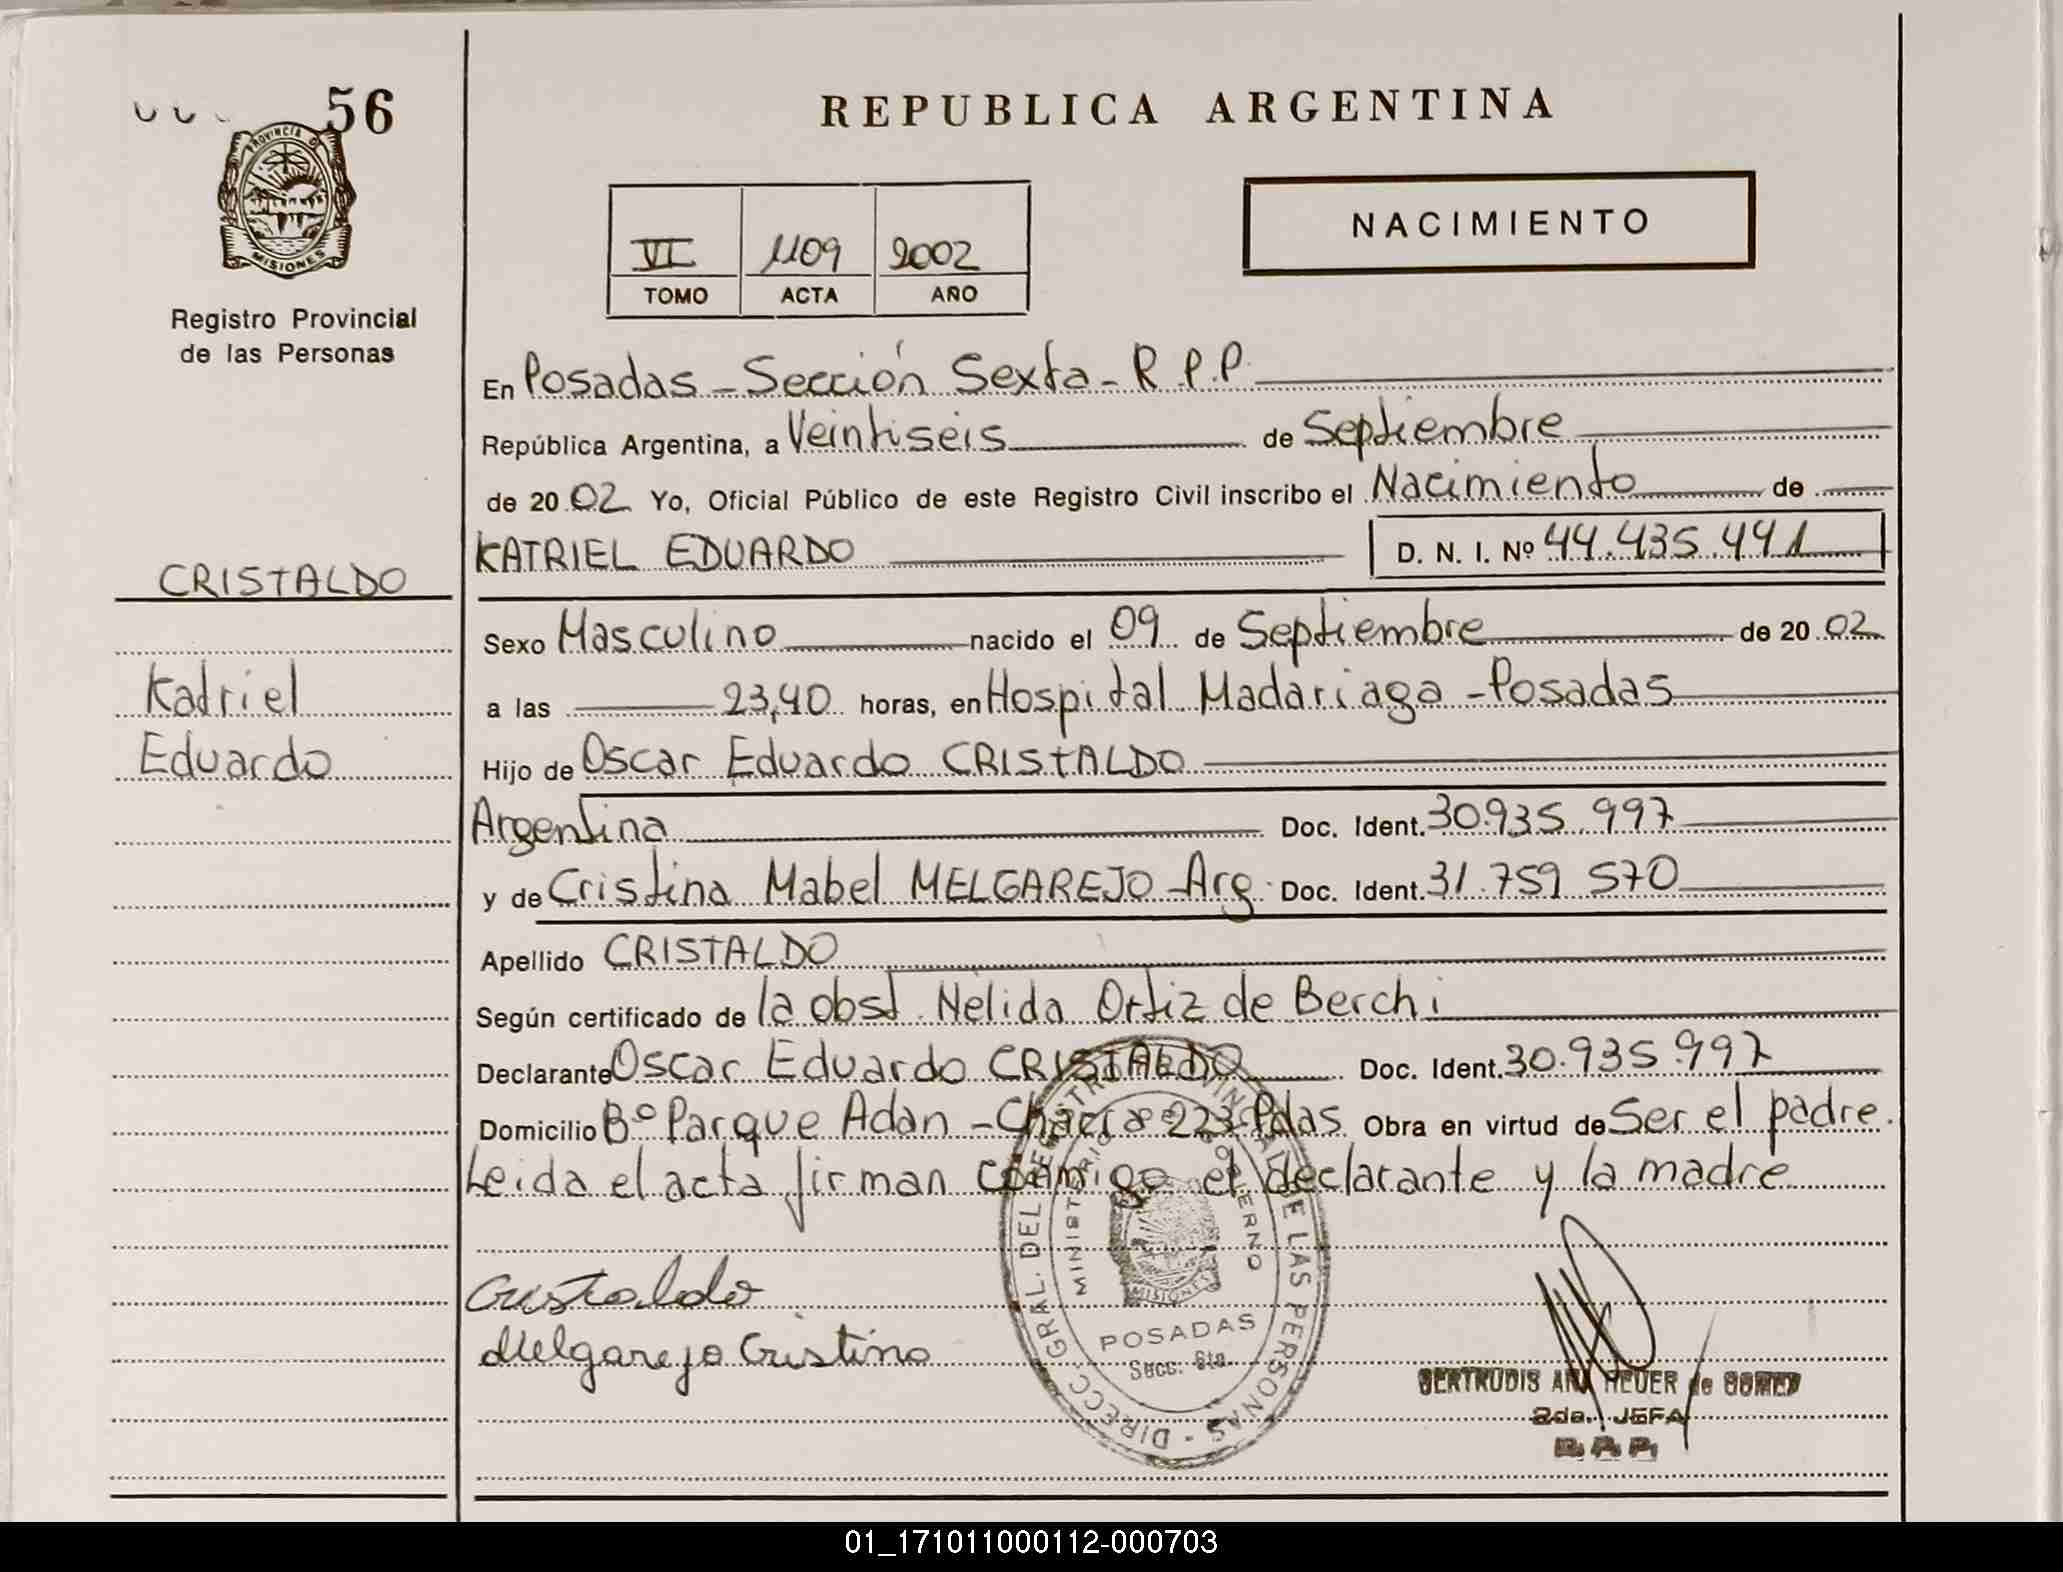 56
REPUBLICA ARGENTINA
PROVINCIA DE
MISIONES
Registro Provincial
de las Personas
VI 1109 2002
TOMO ACTA AÑO
NACIMIENTO
En Posadas - Sección Sexta - R.P.P.
República Argentina, a Veintiseis de Septiembre
de 2002 Yo, Oficial Público de este Registro Civil inscribo el Nacimiento de
CRISTALDO
KATRIEL EDUARDO D. N. I. Nº 44.435.441
Sexo Masculino nacido el 09 de Septiembre de 2002
Katriel
a las 23,40 horas, en Hospital Madariaga - Posadas
Eduardo
Hijo de Oscar Eduardo CRISTALDO
Argentina Doc. Ident. 30.935.997
y de Cristina Mabel MELGAREJO - Arg. Doc. Ident. 31.759.570
Apellido CRISTALDO
Según certificado de la obst. Nelida Ortiz de Berchi
Declarante Oscar Eduardo CRISTALDO Doc. Ident. 30.935.997
Domicilio Bº Parque Adan - Chacra 223 Pdas Obra en virtud de Ser el padre.
Leida el acta firman conmigo el declarante y la madre
Cristaldo
Melgarejo Cristina
DIRECC. GRAL. DEL REGISTRO PROVINCIAL DE LAS PERSONAS
MINISTERIO DE GOBIERNO
MISIONES
POSADAS
Secc. 6ta.
GERTRUDIS ANA HEUER de GOMEZ
2da. JEFA
R. P. P.
01_171011000112-000703